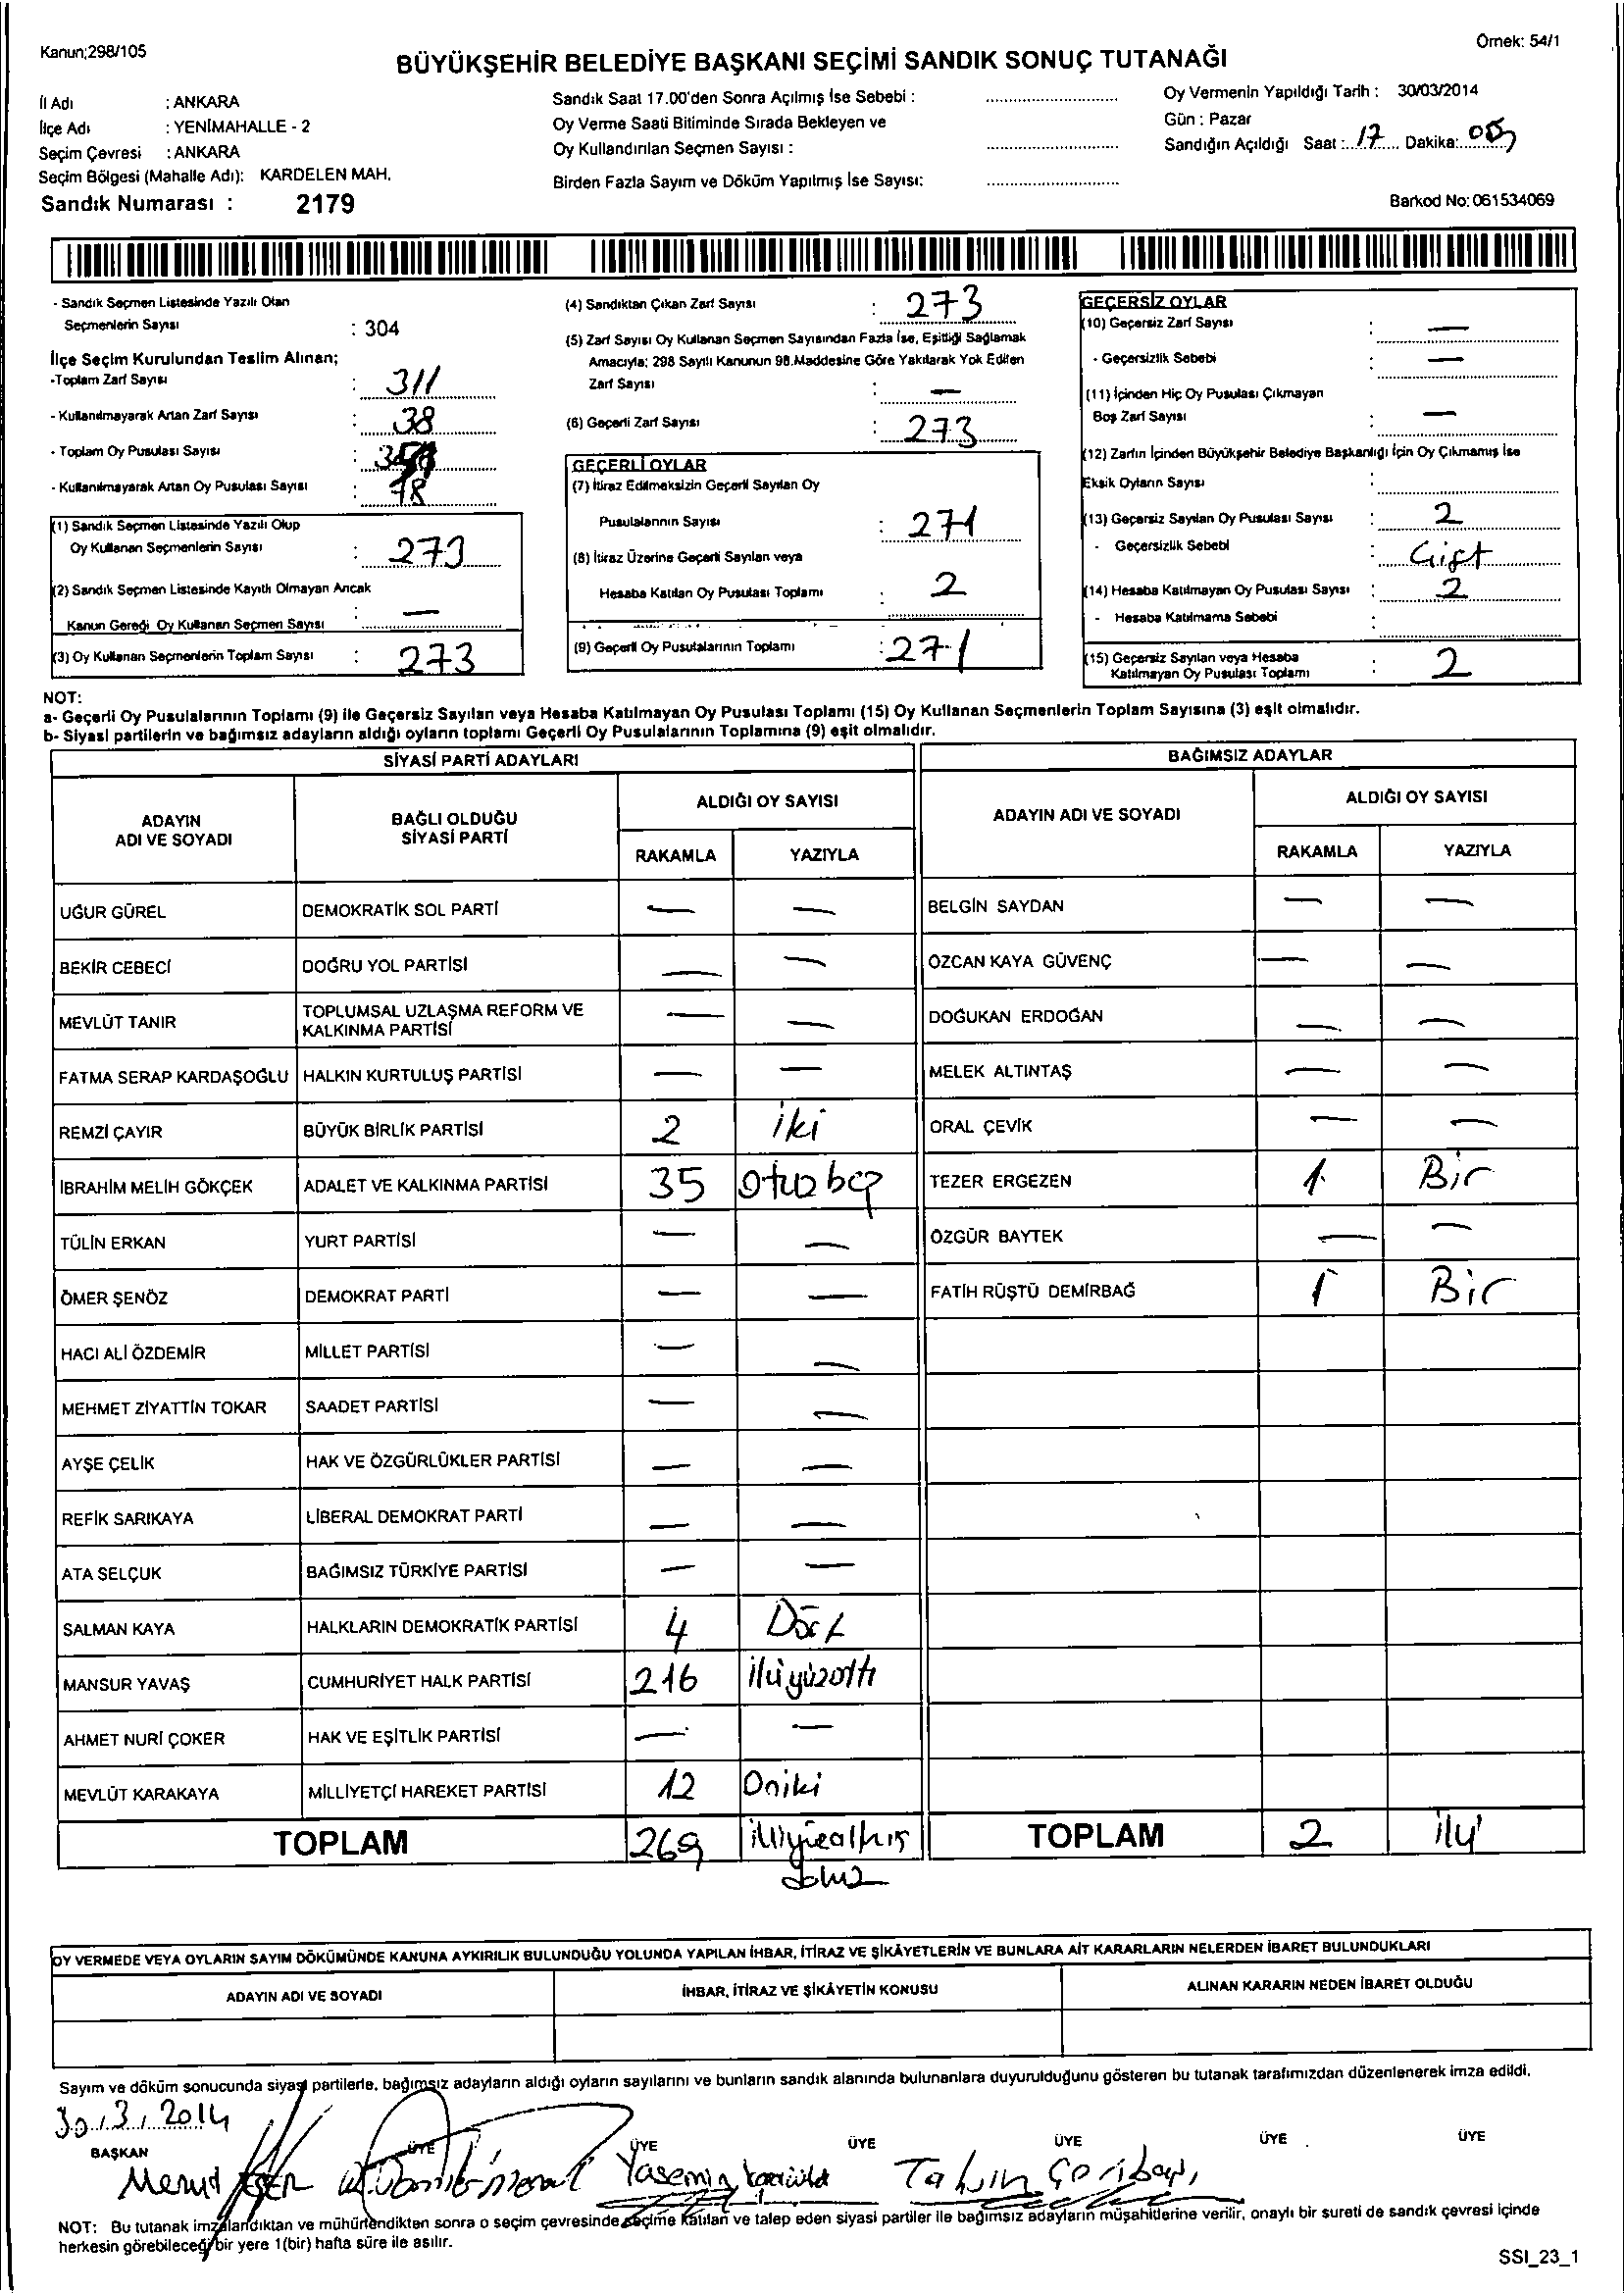 Kanun;298/105
Örnek: 54/1
BÜYÜKŞEHİR BELEDİYE BAŞKANI SEÇİMİ SANDIK SONUÇ TUTANAĞI
İl Adı : ANKARA
İlçe Adı : YENİMAHALLE - 2
Seçim Çevresi : ANKARA
Seçim Bölgesi (Mahalle Adı): KARDELEN MAH.
Sandık Numarası : 2179
Sandık Saat 17.00'den Sonra Açılmış İse Sebebi :
Oy Verme Saati Bitiminde Sırada Bekleyen ve
Oy Kullandırılan Seçmen Sayısı :
Birden Fazla Sayım ve Döküm Yapılmış İse Sayısı:
Oy Vermenin Yapıldığı Tarih : 30/03/2014
Gün : Pazar
Sandığın Açıldığı Saat : 17 Dakika:
Barkod No: 061534069
- Sandık Seçmen Listesinde Yazılı Olan
Seçmenlerin Sayısı : 304
İlçe Seçim Kurulundan Teslim Alınan;
-Toplam Zarf Sayısı : 311
- Kullanılmayarak Artan Zarf Sayısı : 38
- Toplam Oy Pusulası Sayısı :
- Kullanılmayarak Artan Oy Pusulası Sayısı : 78
(1) Sandık Seçmen Listesinde Yazılı Olup
Oy Kullanan Seçmenlerin Sayısı : 273
(2) Sandık Seçmen Listesinde Kayıtlı Olmayan Ancak
Kanun Gereği Oy Kullanan Seçmen Sayısı : —
(3) Oy Kullanan Seçmenlerin Toplam Sayısı : 273
(4) Sandıktan Çıkan Zarf Sayısı : 273
(5) Zarf Sayısı Oy Kullanan Seçmen Sayısından Fazla İse, Eşitliği Sağlamak
Amacıyla; 298 Sayılı Kanunun 98.Maddesine Göre Yakılarak Yok Edilen
Zarf Sayısı : —
(6) Geçerli Zarf Sayısı : 273
GEÇERLİ OYLAR
(7) İtiraz Edilmeksizin Geçerli Sayılan Oy
Pusulalarının Sayısı : 271
(8) İtiraz Üzerine Geçerli Sayılan veya
Hesaba Katılan Oy Pusulası Toplamı : 2
(9) Geçerli Oy Pusulalarının Toplamı : 271
GEÇERSİZ OYLAR
(10) Geçersiz Zarf Sayısı : —
- Geçersizlik Sebebi : —
(11) İçinden Hiç Oy Pusulası Çıkmayan
Boş Zarf Sayısı : —
(12) Zarfın İçinden Büyükşehir Belediye Başkanlığı İçin Oy Çıkmamış İse
Eksik Oyların Sayısı :
(13) Geçersiz Sayılan Oy Pusulası Sayısı : 2
- Geçersizlik Sebebi : Çift
(14) Hesaba Katılmayan Oy Pusulası Sayısı : 2
- Hesaba Katılmama Sebebi :
(15) Geçersiz Sayılan veya Hesaba
Katılmayan Oy Pusulası Toplamı : 2
NOT:
a- Geçerli Oy Pusulalarının Toplamı (9) ile Geçersiz Sayılan veya Hesaba Katılmayan Oy Pusulası Toplamı (15) Oy Kullanan Seçmenlerin Toplam Sayısına (3) eşit olmalıdır.
b- Siyasi partilerin ve bağımsız adayların aldığı oyların toplamı Geçerli Oy Pusulalarının Toplamına (9) eşit olmalıdır.
SİYASİ PARTİ ADAYLARI
ADAYIN ADI VE SOYADI BAĞLI OLDUĞU SİYASİ PARTİ ALDIĞI OY SAYISI
RAKAMLA YAZIYLA
UĞUR GÜREL DEMOKRATİK SOL PARTİ — —
BEKİR CEBECİ DOĞRU YOL PARTİSİ — —
MEVLÜT TANIR TOPLUMSAL UZLAŞMA REFORM VE KALKINMA PARTİSİ — —
FATMA SERAP KARDAŞOĞLU HALKIN KURTULUŞ PARTİSİ — —
REMZİ ÇAYIR BÜYÜK BİRLİK PARTİSİ 2 iki
İBRAHİM MELİH GÖKÇEK ADALET VE KALKINMA PARTİSİ 35 otuzbeş
TÜLİN ERKAN YURT PARTİSİ — —
ÖMER ŞENÖZ DEMOKRAT PARTİ — —
HACI ALİ ÖZDEMİR MİLLET PARTİSİ — —
MEHMET ZİYATTİN TOKAR SAADET PARTİSİ — —
AYŞE ÇELİK HAK VE ÖZGÜRLÜKLER PARTİSİ — —
REFİK SARIKAYA LİBERAL DEMOKRAT PARTİ — —
ATA SELÇUK BAĞIMSIZ TÜRKİYE PARTİSİ — —
SALMAN KAYA HALKLARIN DEMOKRATİK PARTİSİ 4 Dört
MANSUR YAVAŞ CUMHURİYET HALK PARTİSİ 216 ikiyüzoltı
AHMET NURİ ÇOKER HAK VE EŞİTLİK PARTİSİ — —
MEVLÜT KARAKAYA MİLLİYETÇİ HAREKET PARTİSİ 12 Oniki
TOPLAM 269 ikiyüzaltmış
dokuz
BAĞIMSIZ ADAYLAR
ADAYIN ADI VE SOYADI ALDIĞI OY SAYISI
RAKAMLA YAZIYLA
BELGİN SAYDAN — —
ÖZCAN KAYA GÜVENÇ — —
DOĞUKAN ERDOĞAN — —
MELEK ALTINTAŞ — —
ORAL ÇEVİK — —
TEZER ERGEZEN 1 Bir
ÖZGÜR BAYTEK — —
FATİH RÜŞTÜ DEMİRBAĞ 1 Bir
TOPLAM 2 iki
OY VERMEDE VEYA OYLARIN SAYIM DÖKÜMÜNDE KANUNA AYKIRILIK BULUNDUĞU YOLUNDA YAPILAN İHBAR, İTİRAZ VE ŞİKÂYETLERİN VE BUNLARA AİT KARARLARIN NELERDEN İBARET BULUNDUKLARI
ADAYIN ADI VE SOYADI İHBAR, İTİRAZ VE ŞİKÂYETİN KONUSU ALINAN KARARIN NEDEN İBARET OLDUĞU
Sayım ve döküm sonucunda siyasi partilerle, bağımsız adayların aldığı oyların sayılarını ve bunların sandık alanında bulunanlara duyurulduğunu gösteren bu tutanak tarafımızdan düzenlenerek imza edildi.
30/3/2014
BAŞKAN ÜYE ÜYE ÜYE ÜYE ÜYE ÜYE
Yasemin
NOT: Bu tutanak imzalandıktan ve mühürlendikten sonra o seçim çevresinde seçime katılan ve talep eden siyasi partiler ile bağımsız adayların müşahitlerine verilir, onaylı bir sureti de sandık çevresi içinde
herkesin görebileceği bir yere 1(bir) hafta süre ile asılır.
SSI_23_1